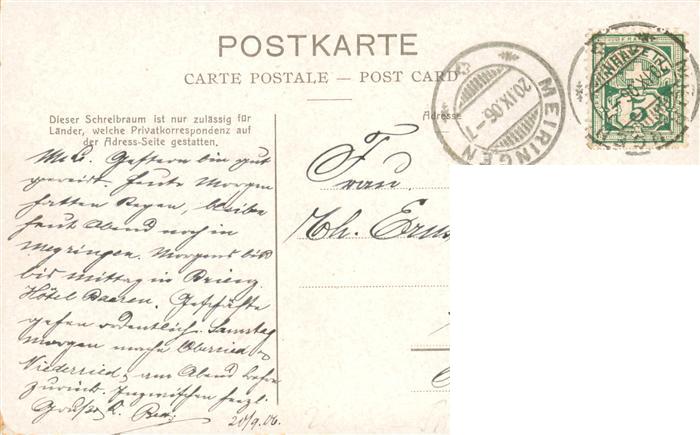 POSTKARTE
CARTE POSTALE — POST CARD
Dieser Schreibraum ist nur zulässig für
Länder, welche Privatkorrespondenz auf
der Adress-Seite gestatten.
Adresse
MEIRINGEN
20.IX.06.-7
5
Gestern bin gut
gereist. Heute Morgen
hatten Regen, bleibe
heut Abend noch in
Meyringen. Morgens
bis Mittag in Brienz
Hôtel Baeren. Geschäfte
gehen ordentlich. Samstag
Morgen mache Oberried &
Niederried, am Abend
zurück. Inzwischen herzl.
Gruss
20/9.06.
Frau
Th.